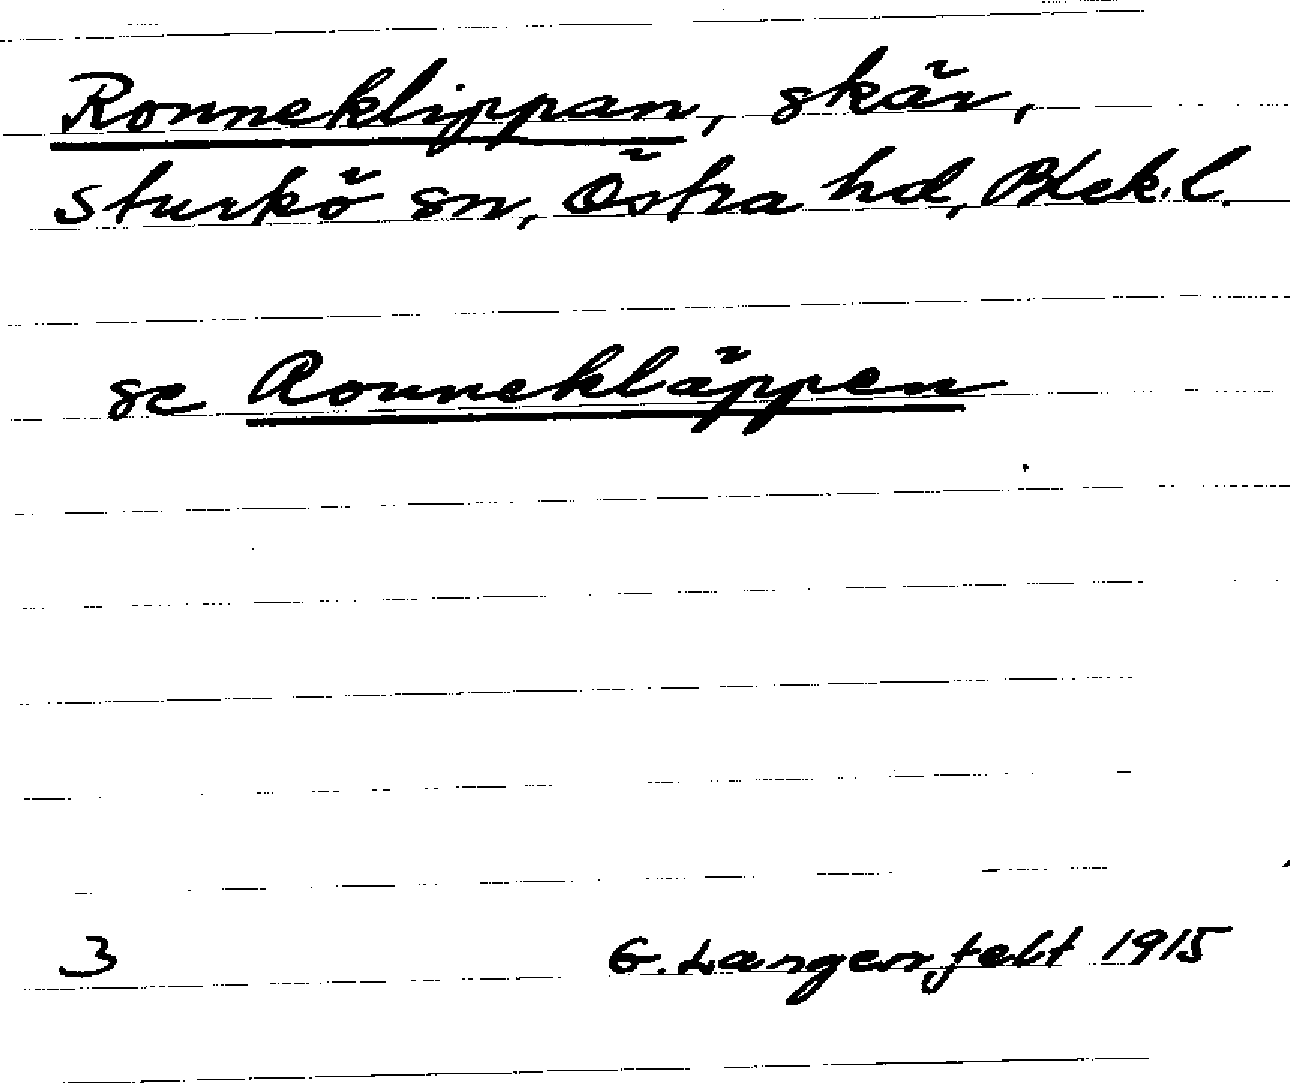 Ronneklippan, skär,
Sturkö sn, Östra hd, Blek. l.
se Ronnekläppen
3 G. Langenfelt 1915